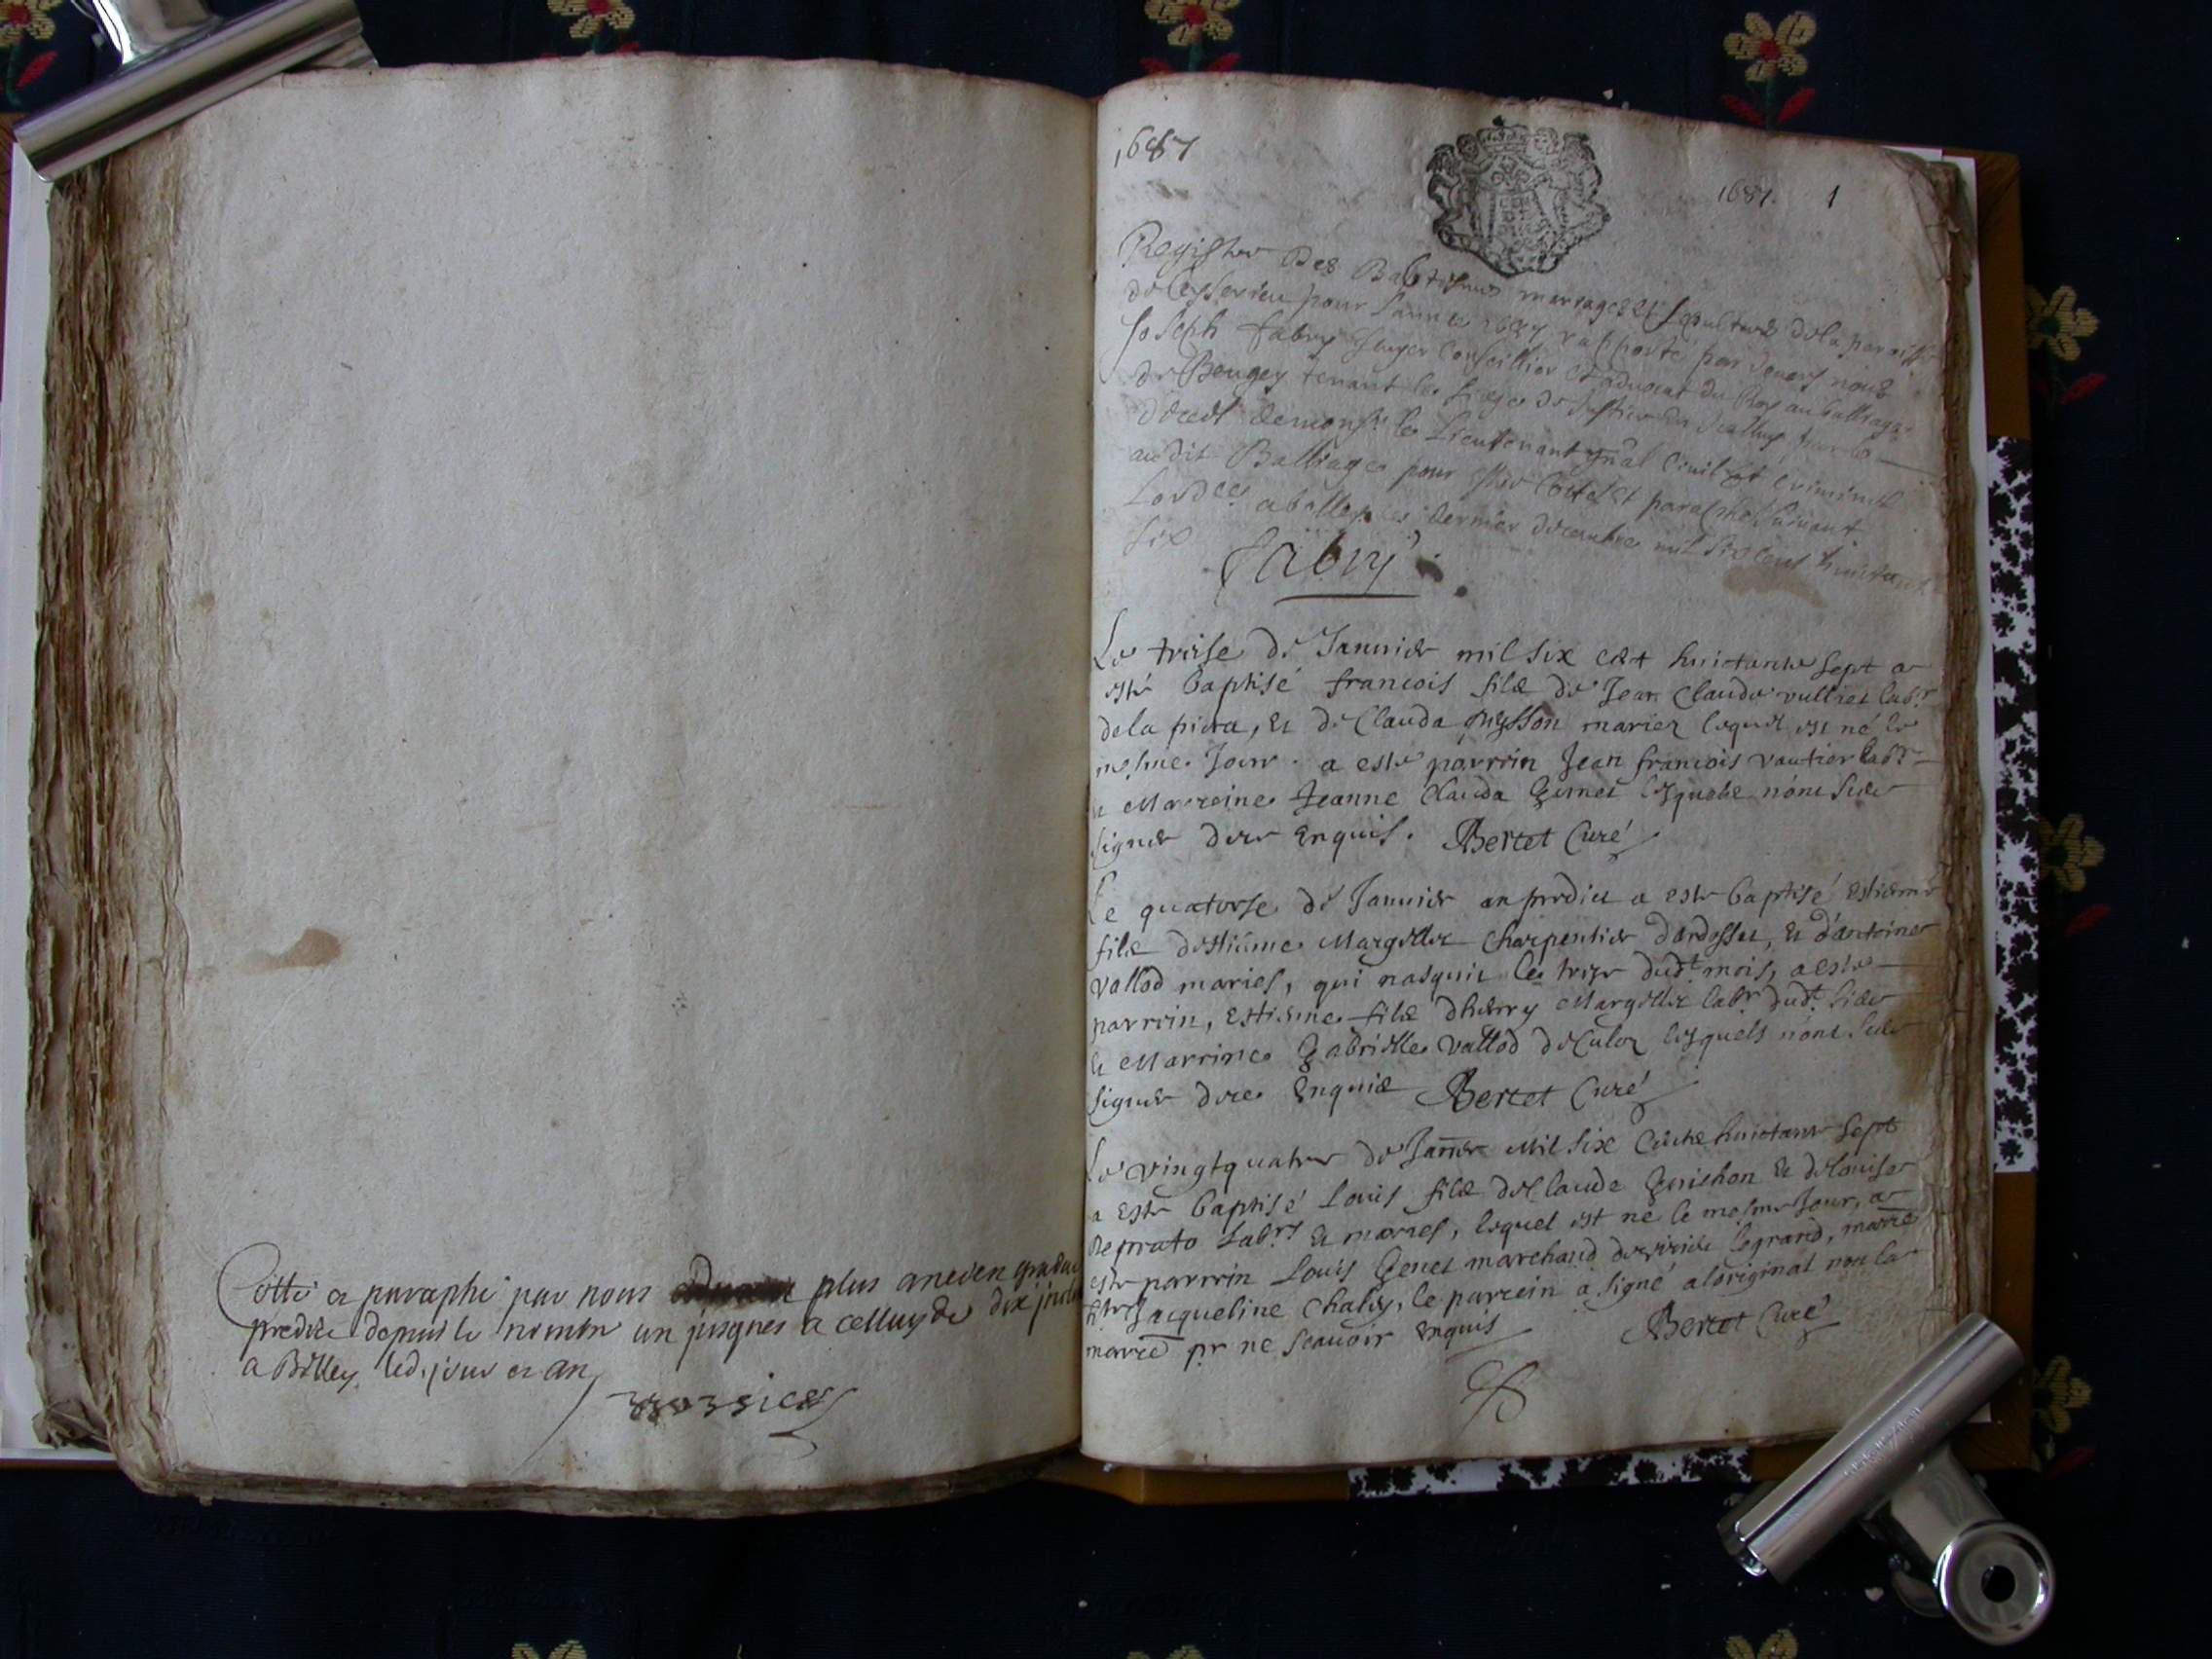 Cotté et paraphé par nous plus ancien gradué
predict depuis le nombre un jusques a celluy de dix inclu
a Belley led. jour et an
1687
1687. 1
Registre des Baptesmes mariages et sepulture de la paroisse
de Ceyserieu pour lannee 1687 rapporté par devers nous
Joseph fabry Juger Conseillier et advocat du Roy au balliage
de Bougey tenant le siege de Justice de Belley par le
deces de monsr le Lieutenant gnal Civil et criminel
audit Balliage pour estre Cotté et paraphé suivant
Lordce a belley le dernier decembre mil six cent huictante
six
fabry
Le treise de Januier mil six cent huictante sept a
esté baptisé francois filz de Jean Claude vulliet labr.
de la piera, et de Clauda mariez lequel est né le
mesme Jour. a esté parrin Jean francois vautier labr
et Marreine Jeanne Clauda Genet lesquels nont sceu
signer de ce enquis. Bertet Curé
Le quatorse de Januier an predict a esté baptisé estienne
filz destienne Margillie charpentier dardosset, et dantoine
vallod mariés, qui nasquit le treize dudt mois, a esté
parrin, estienne filz dhenry Margillie labr dudt lieu
et Marrine Gabrielle vallod de Culoz lesquels nont sceu
signer de ce enquis Bertet Curé
Le vingtquatre de Janer Mil six Cents huictante sept
a esté baptisé Louis filz de Claude Guichon et de Louise
de prato Labrs et mariés, lequel est né le mesme Jour, a
esté parrin Louis Genet marchand de le grand, marre
Jacqueline Chaley, le parrein a signé a loriginal non la
marre pr ne scauoir enquis Bertet Curé